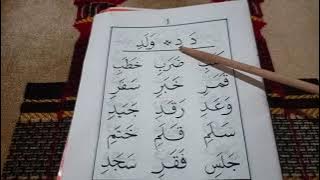 دَ دِ * وَلَدِ
ضَرَبِ خَطَبِ
قَمَرِ خَبَرِ سَفَرِ
وَعَدِ رَقَدِ جَبَدِ
سَلَمِ قَلَمِ خَتَمِ
جَلَسِ فَقَرِ سَجَدِ